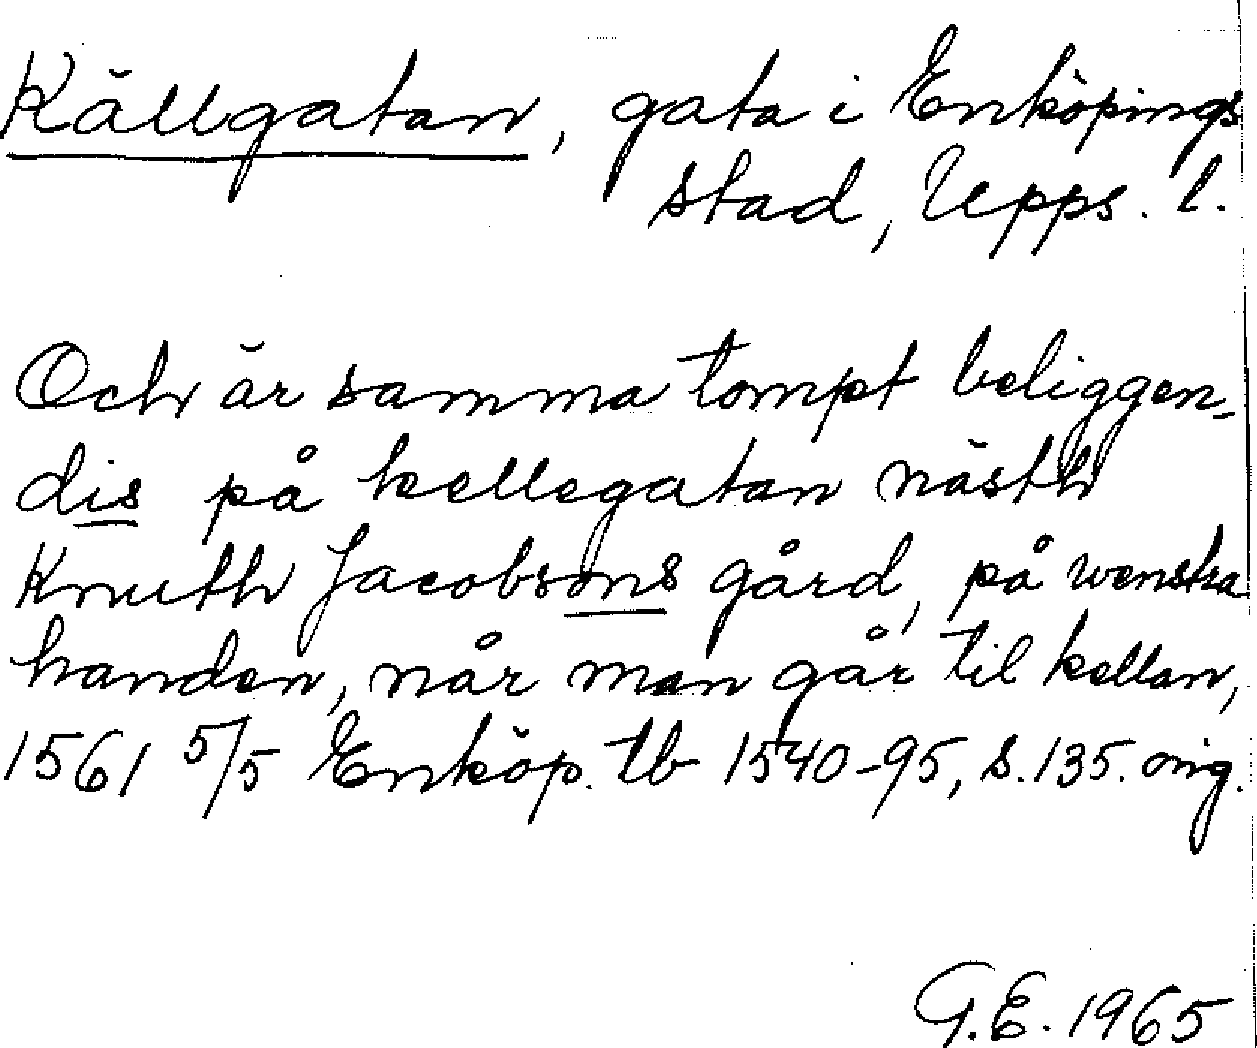 Källgatan, gata i Enköpings
stad, Upps. l.
Och är samma tompt beliggen-
dis på kellegatan nästh
Knuth Jacobsons gård, på wenstra
handen, når man går til kellan,
1561 5/5 Enköp. tb 1540-95, s. 135. orig.
G.E. 1965